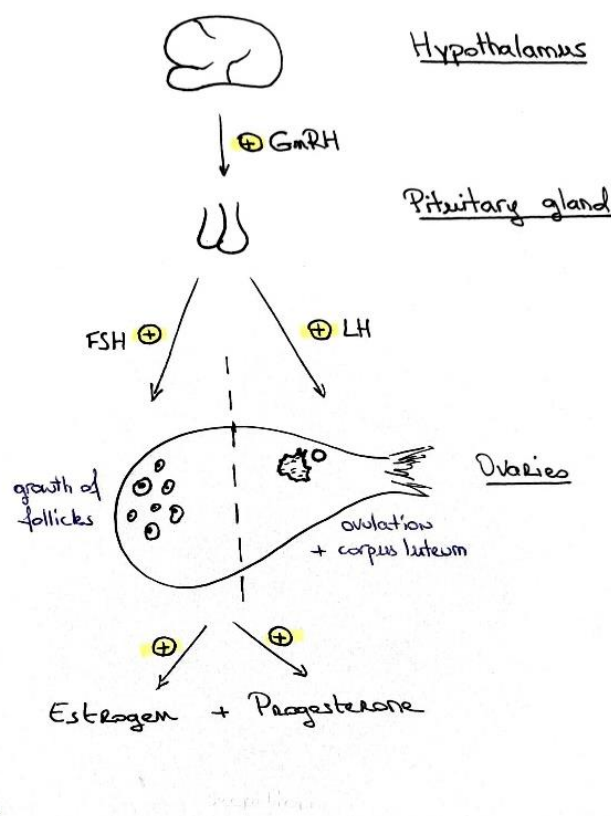 Hypothalamus
+ GnRH
Pituitary gland
FSH +
+ LH
Ovaries
growth of
follicles
ovulation
+ corpus luteum
+
+
Estrogen + Progesterone